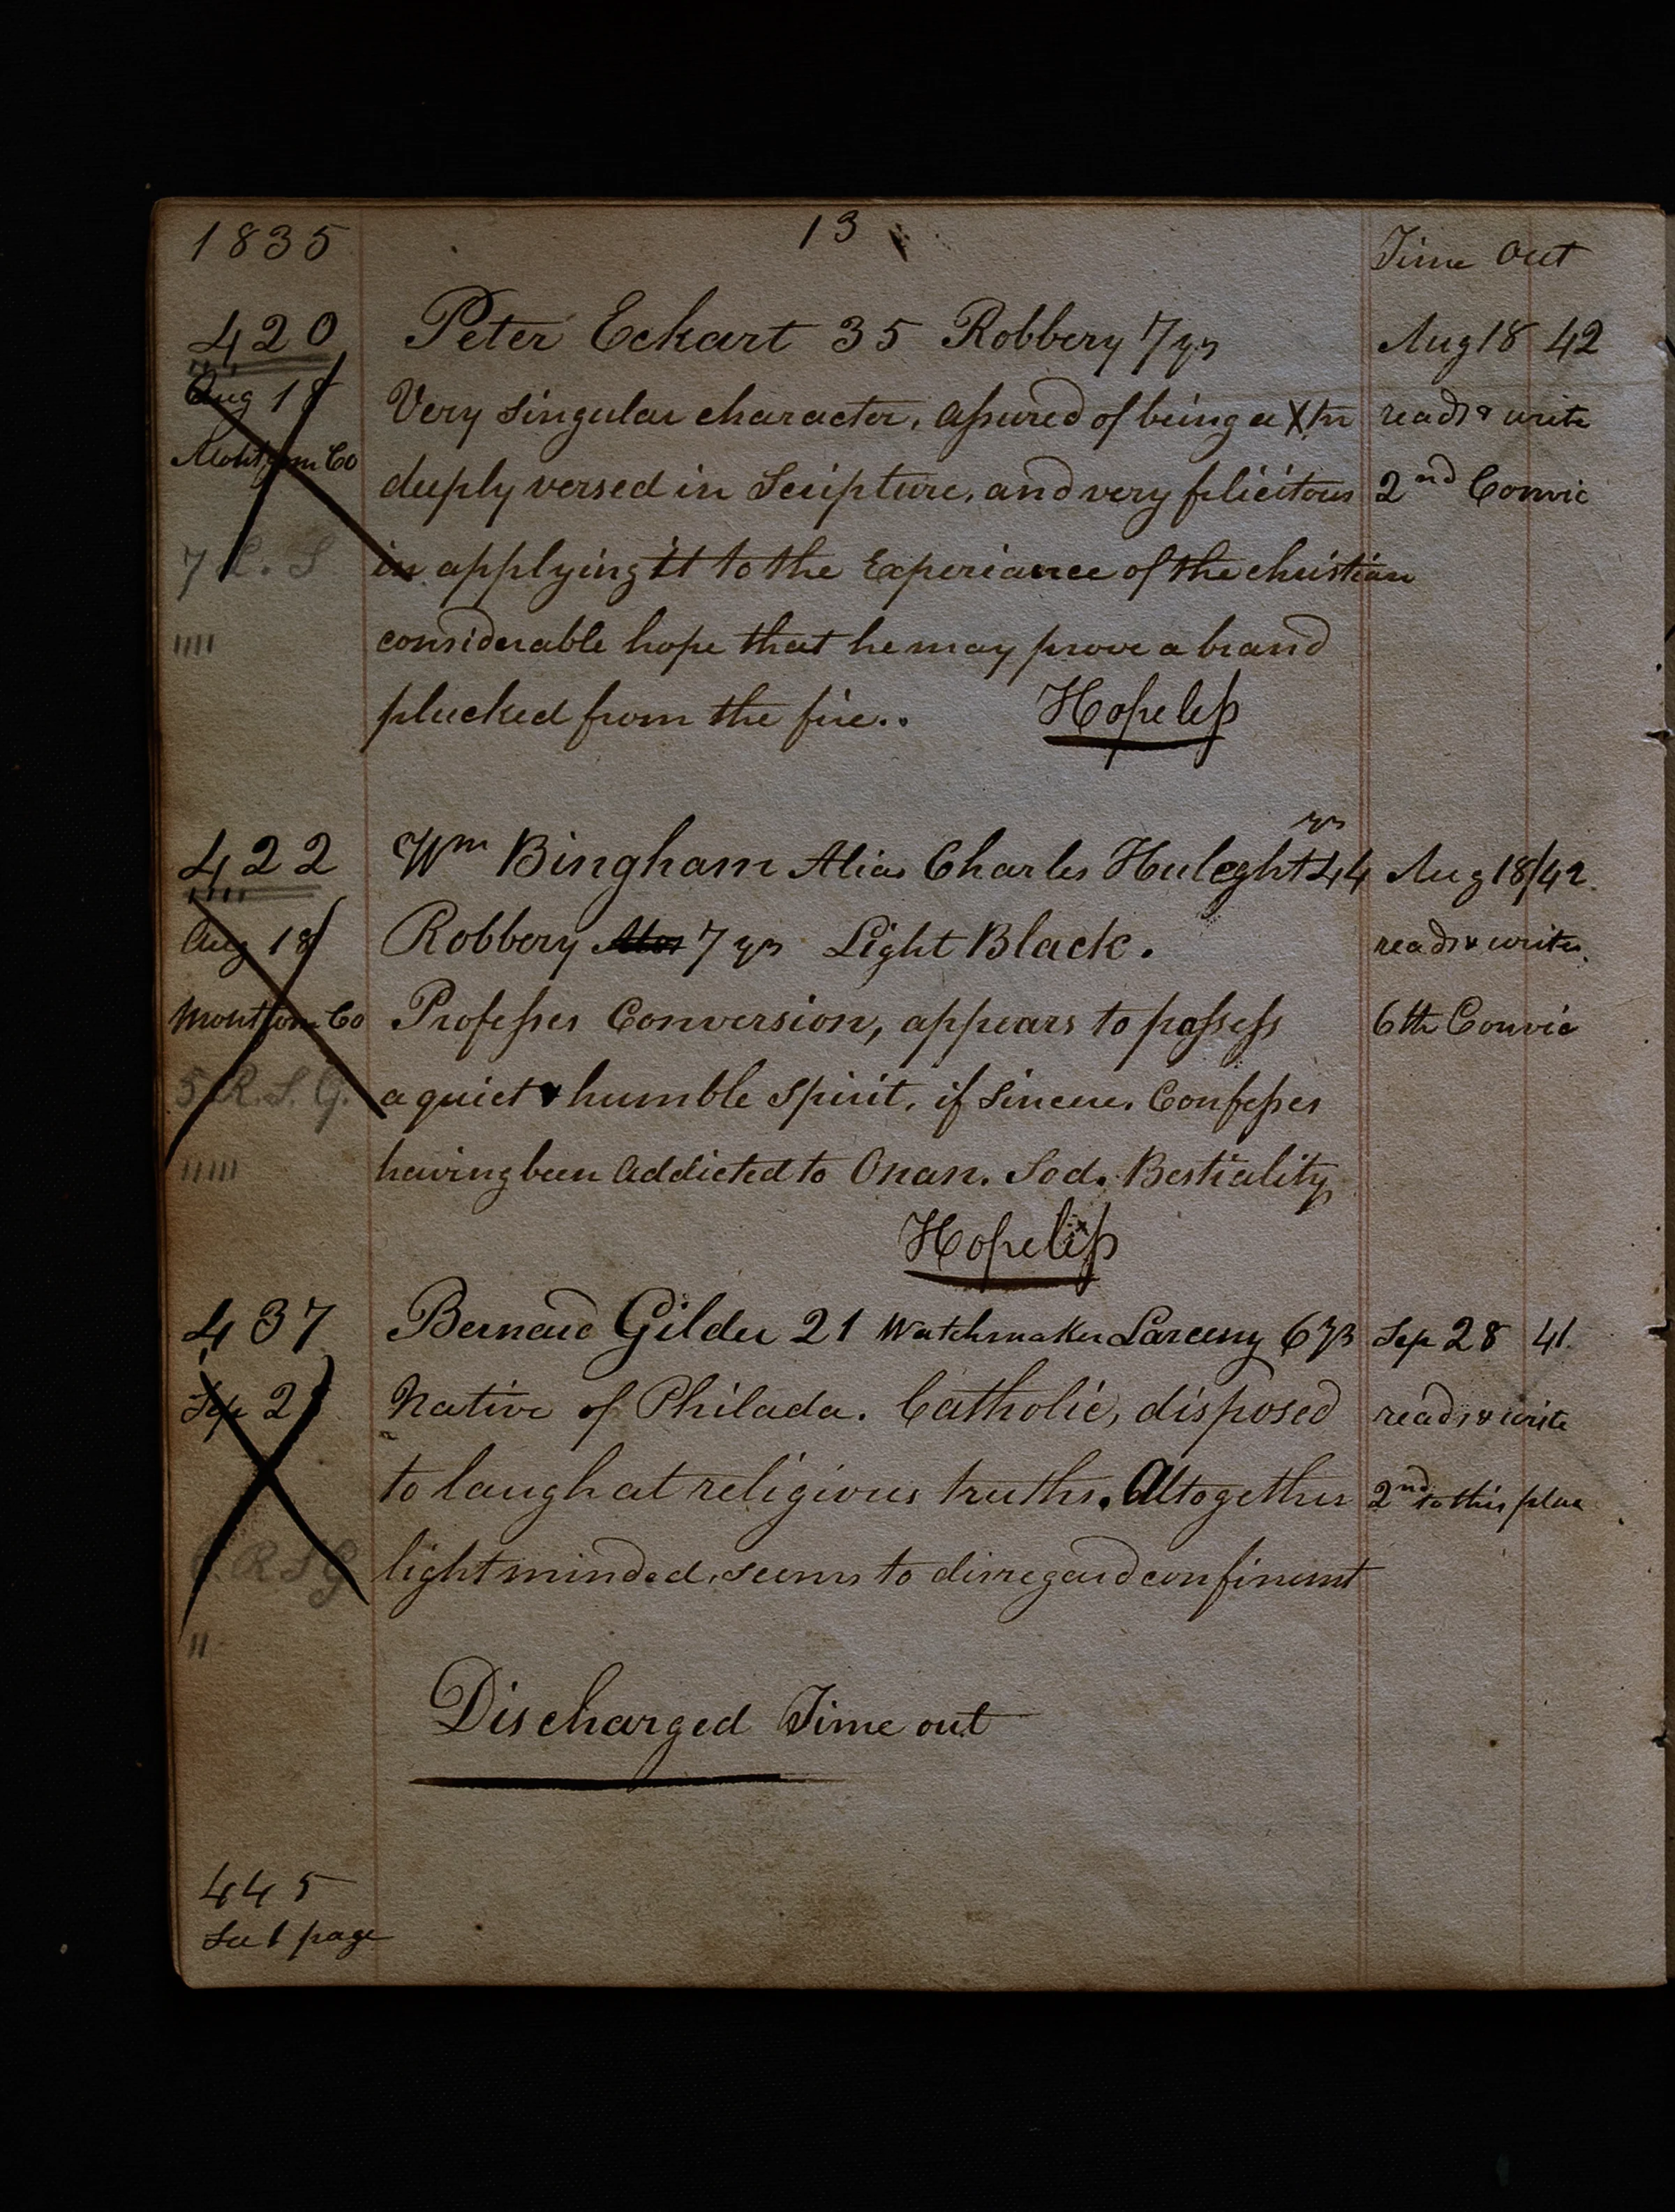 1835 13 Time Out
420 Peter Eckart 35 Robbery 7 ys Aug 18 42
Aug 18 Very singular character, assured of being a Xtn reads & write
Montgom Co deeply versed in Scripture, and very felicitous 2nd Convic
7 S in applying it to the Experiance of the christian
|||| considerable hope that he may prove a brand
plucked from the fire.. Hopeless
422 Wm Bingham Alias Charles Huleght 44 ys Aug 18/42.
Aug 18 Robbery 7 ys Light Black. reads & writes
Montgom Co Professes Conversion, appears to possess 6th Convic
5 R. S. G. a quiet & humble spirit, if sincere. Confesses
||||| having been addicted to Onan. Sod. Bestiality
Hopeless
437 Bernard Gilder 21 Watchmaker Larceny 6 ys Sep 28 41.
Sep 28 Native of Philada. Catholic, disposed reads & write
to laugh at religious truths. Altogether 2nd to this place
R S G light minded, seems to disregard confinemt
||
Discharged Time out
445
See 1 page